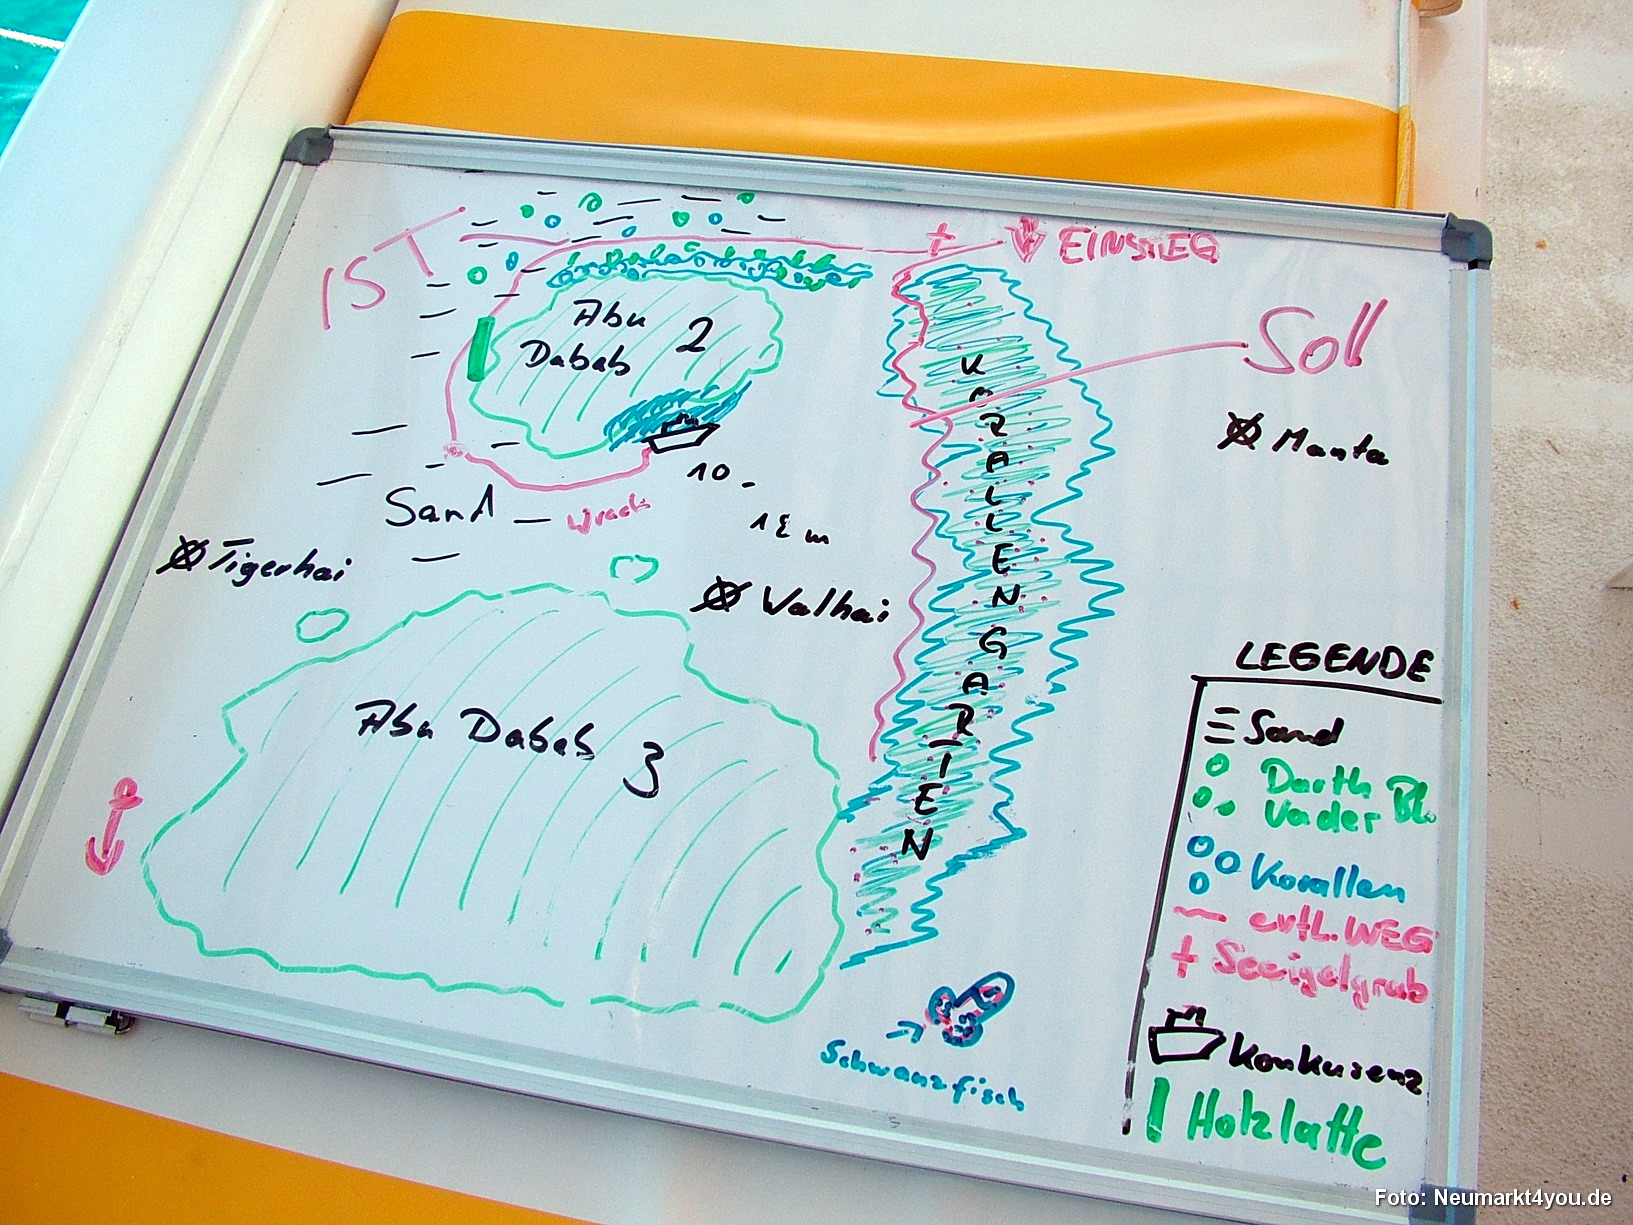 IST
EINSTIEG
Soll
Abu
Dabab 2
Manta
10 -
12 m
Sand
Wrack
Tigerhai
Walhai
KORALLENGARTEN
Abu Dabab 3
Schwanzfisch
LEGENDE
Sand
Darth
Vader
Korallen
evtl. WEG
Seeigelgrab
Konkurenz
Holzlatte
Foto: Neumarkt4you.de